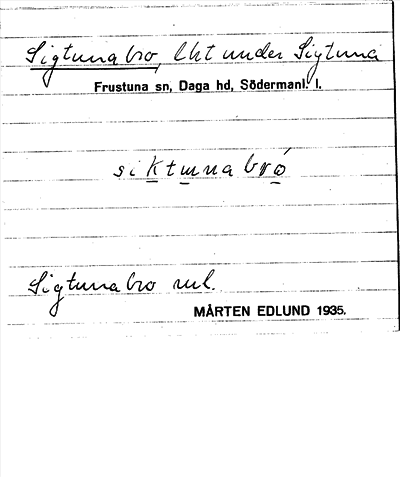 Sigtuna bro, lht under Sigtuna
Frustuna sn, Daga hd, Södermanl. l.
siktuna bró
Sigtuna bro uul.
MÅRTEN EDLUND 1935.